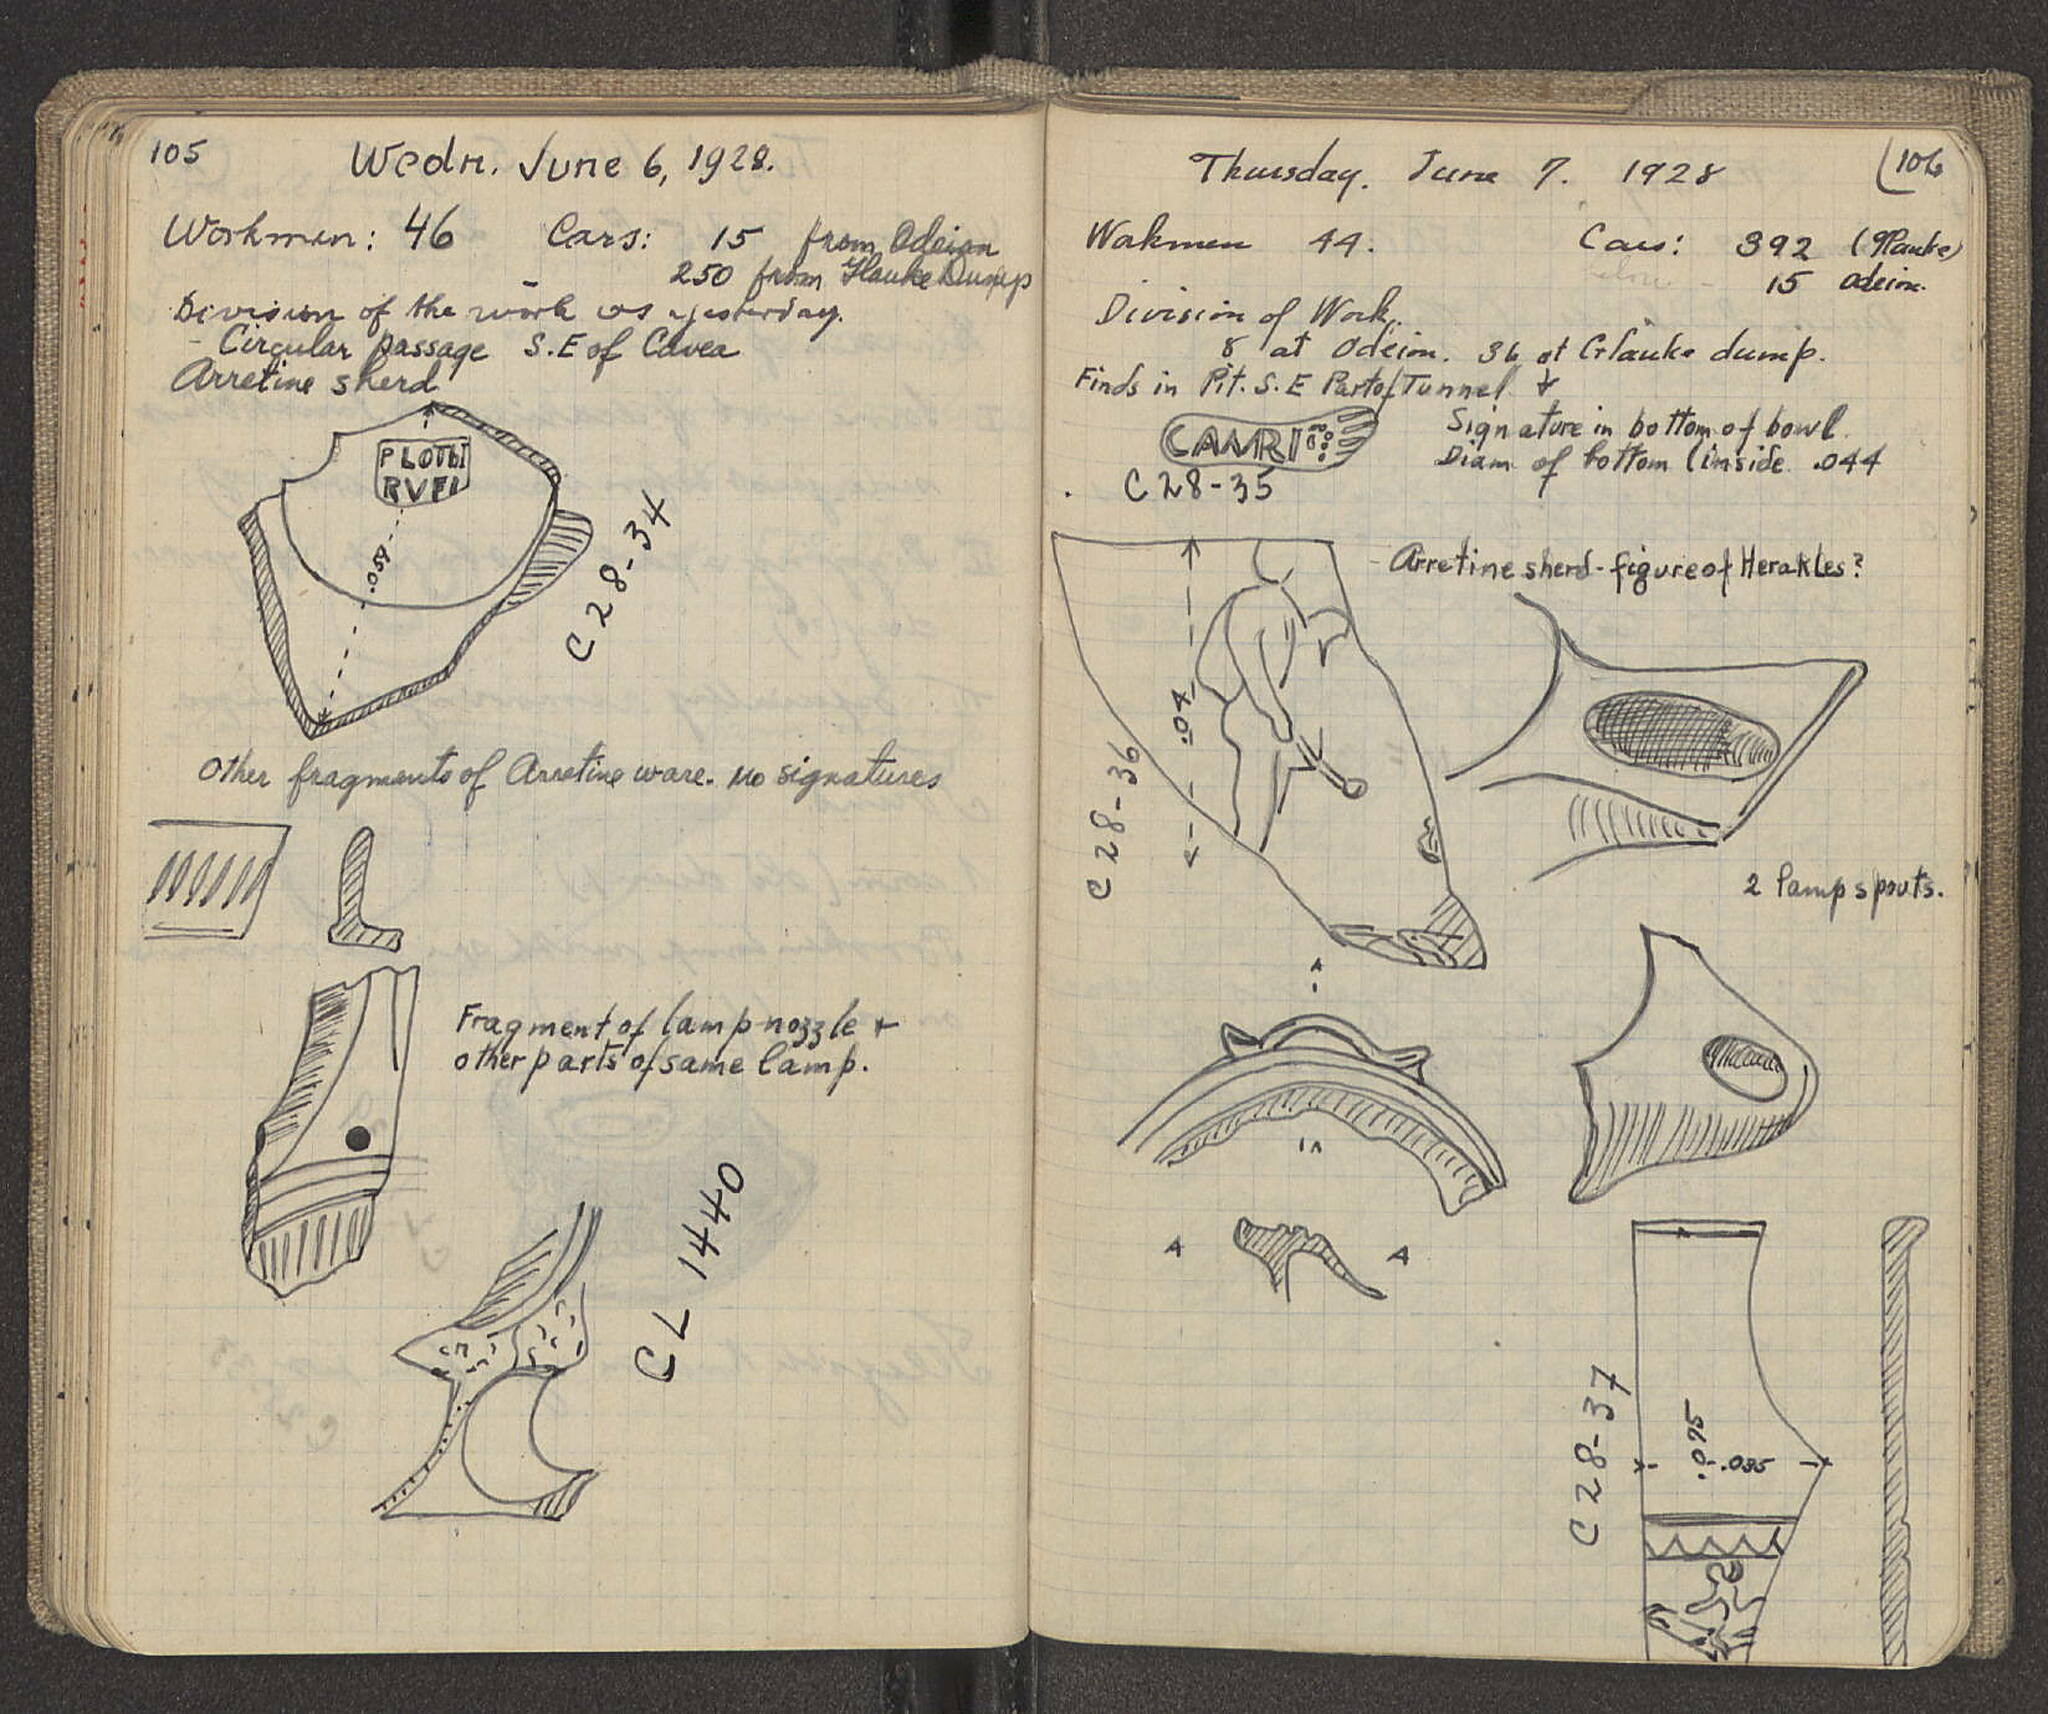 105
Wedn. June 6, 1928.
Workmen: 46 Cars: 15 from Odeion
250 from Glauke Dump
Division of the work as yesterday.
- Circular passage S.E of Cavea
Arretine sherd
PLOTbI
RVFI
.059
C 28-34
Other fragments of Arretine ware. no signatures
Fragment of lamp nozzle +
other parts of same lamp.
CL 1440
Thursday. June 7. 1928
106
Workmen 44. Cars: 392 (Glauke)
15 Odeion.
Division of Work.
8 at Odeion. 36 at Glauke dump.
Finds in Pit. S.E Part of Tunnel +
Signature in bottom of bowl.
Diam of bottom (inside .044
C 28-35
- Arretine sherd - figure of Herakles?
.04
C 28-36
2 lamp spouts.
A
A
A A
C 28-37
.075
.035